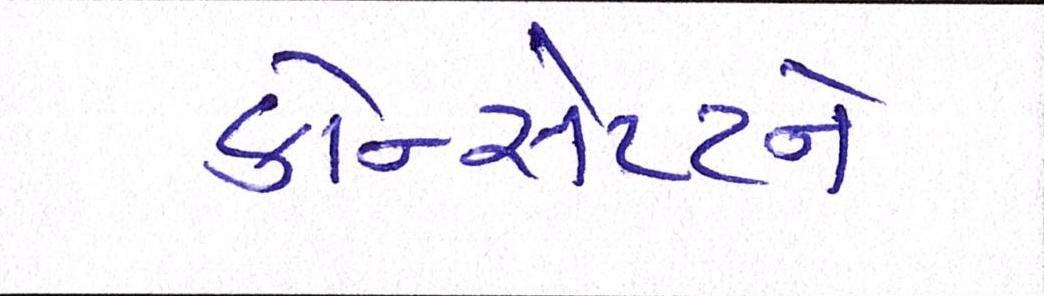 કોન્સેપ્ટને